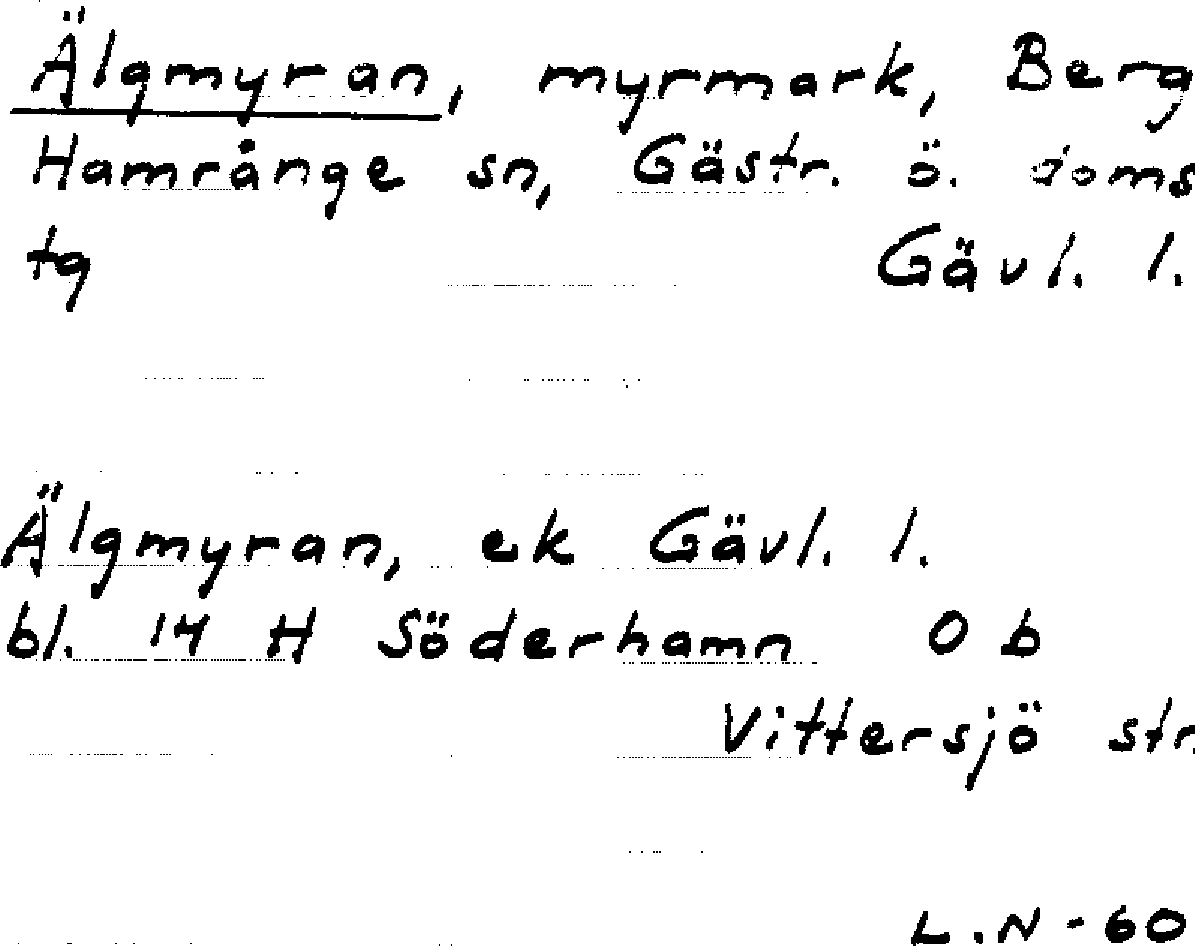 Älgmyran, myrmark, Berg
Hamrånge sn, Gästr. ö. doms
tg Gävl. l.
Älgmyran, ek Gävl. l.
bl. 14 H Söderhamn 0 b
Vittersjö str.
L.N-60